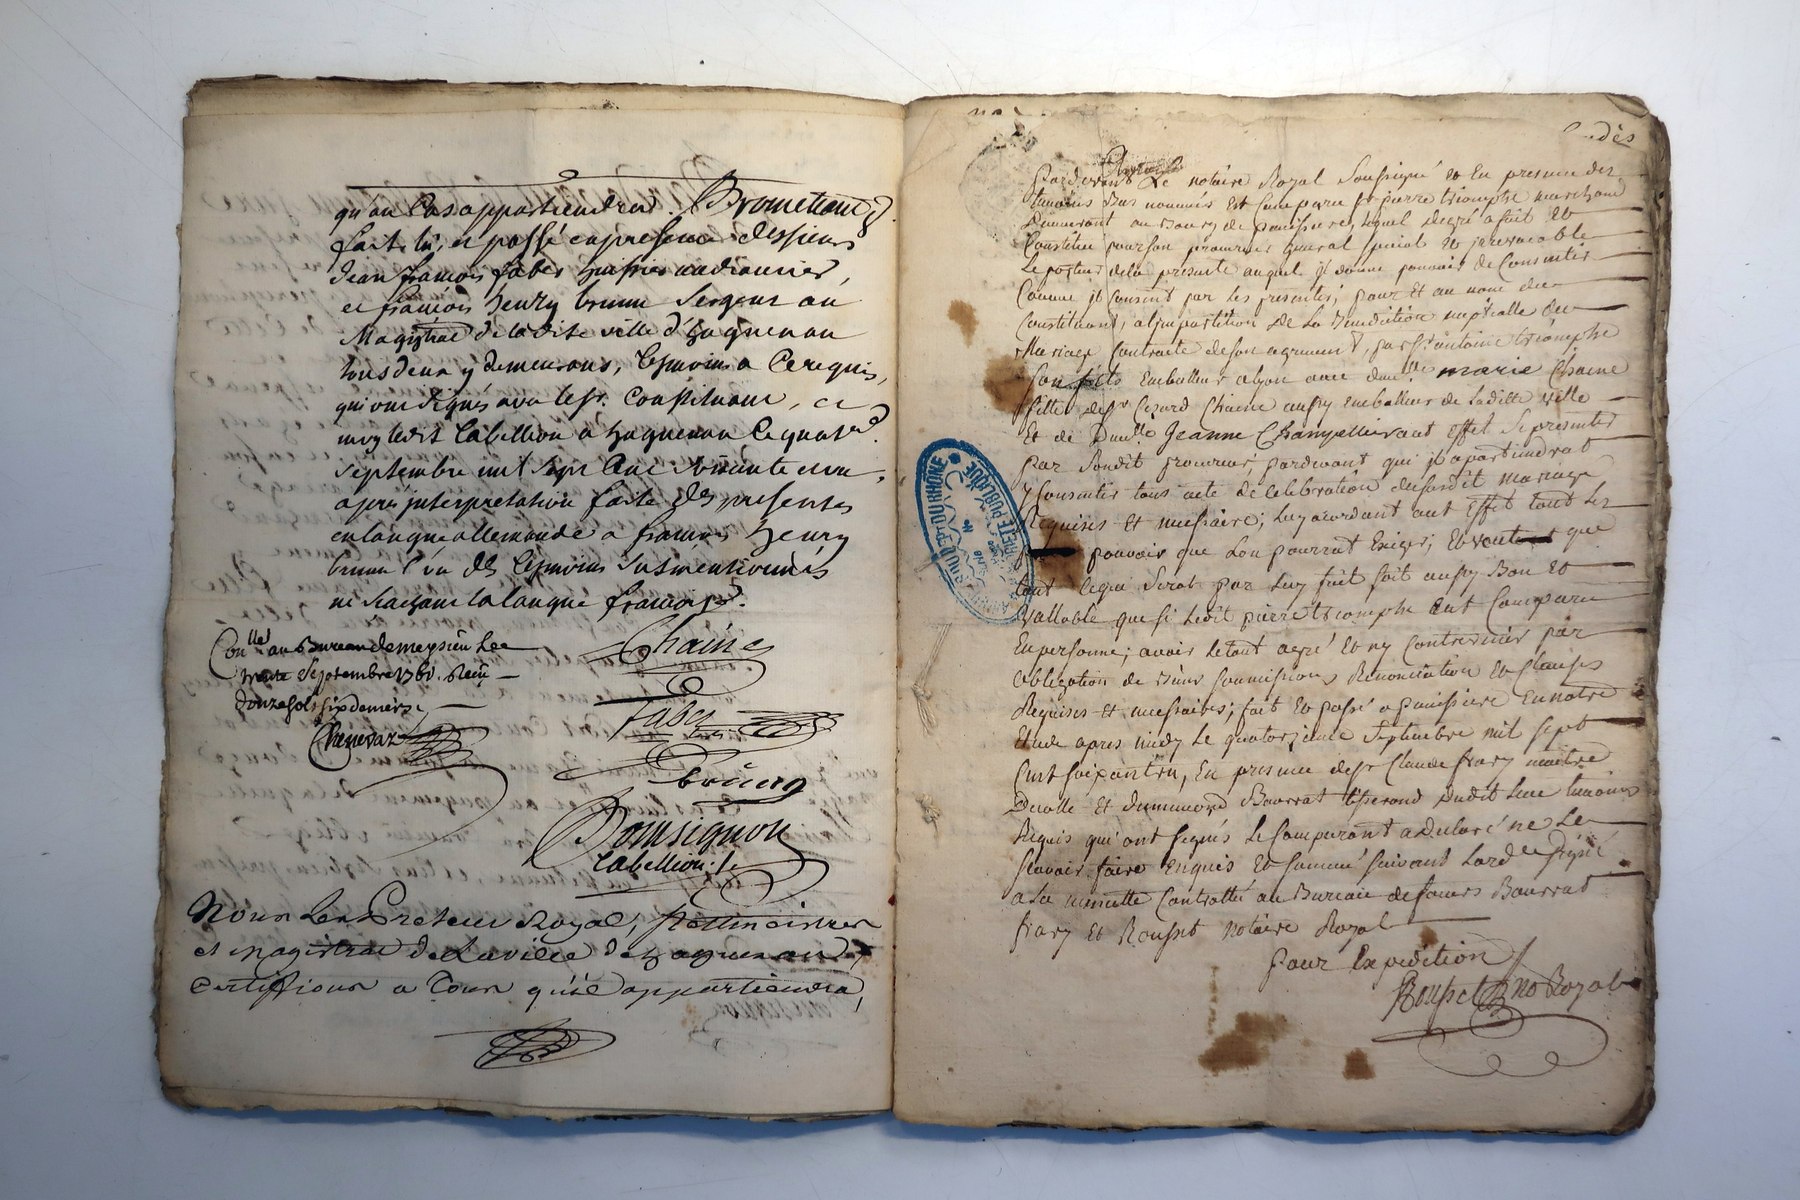 qu'au Cas appartiendra. Promettant &
fait, lû, et passé en presence des sieurs
Jean françois faber huissier audiancier,
et françois henry brunn Sergent au
Magistrat de ladite ville d'haguenau
tous deux y demeurans, tesmoins a Ce requis,
qui ont signés avec le sr. Constituant, et
moy ledit tabellion a haguenau le
septembre mil sept Cent soixante et un,
aprés interpretation faite des presentes
en langue allemande a françois henry
brunn l'un des tesmoins susmentionnés
ne sachant la langue françoise.
Con.llé au Bureau de meysieu Le
trente Septembre 1761. Reçu
douze sols six deniers,
Chenevaz
Chaine
faber
brünn
Domsignon
tabellion
Nous Les Preteur Royal, Stettmeistres
et magistrat de La ville de haguenau,
Certifions a Tous qu'il appartiendra,
Pardevant Le notaire Royal Soussigné et En presence des
temoins Bas nommés Est Comparu sr pierre triomphe marchand
Demeurant au Bourg de panissiere, lequel degré a fait et
Constitué pour son procureur general special et jrrevocable
Le porteur de la presente auquel jl donne pouvoir de Consentir
Comme jl Consent par Les presentes, pour Et au nom du
Constituant, a l'impartition de La Benediction nuptialle du
Mariage Contracté de son agrement, par sr antoine triomphe
son fils Emballeur a lyon avec dam.lle marie Chaine
fille de sr Cezard Chaine aussy emballeur de Laditte ville
Et de Dam.lle Jeanne Champellier aut Effet Se presenter
par Sondit procureur, pardevant qui jl apartiendrat
y Consentir tous acte de Celebration dususdit mariage
Requises Et necessaire; luy acordant aut Effet tout Les
pouvoir que Lon pourrat Exiger; Et que
tout Cequi Serat par Luy fait soit aussy Bon Et
Vallable que si Ledit pierre triomphe Eut Comparu
En personne; avoir Le tout agré Et ny Contrevenir par
obligation de Biens Soumissions Renonciation Et Clauses
Requises Et necessaires; fait Et passé a panissiere En notre
Etude apres midy Le quatorzieme Septembre mil sept
Cent soixante un, En presence de sr Claude fiary maitre
Decolle Et Bourrat tisserand dudit lieu temoins
Requis qui ont signés Le Comparant a declaré ne Le
sçavoir faire Enquis Et sommé suivant Lord.ce signé
a La minutte Controllée au Bureau de fours Bourrat
fiary Et Rousset notaire Royal
pour Expedition
Rousset no Royal